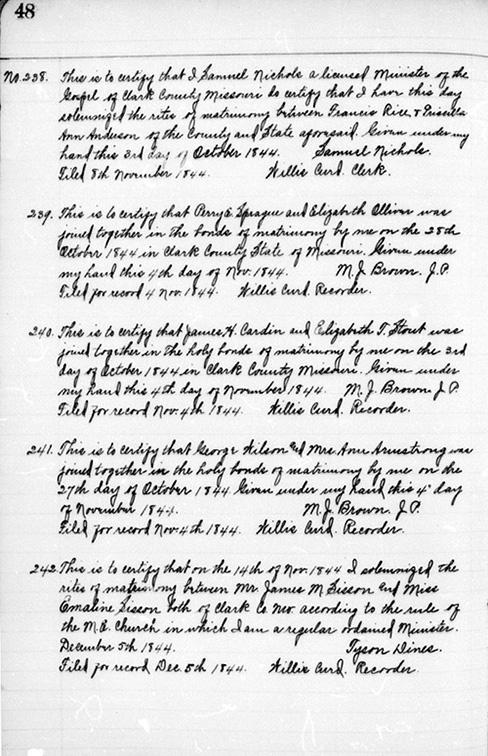 48
No. 238. This is to certify that I Samuel Nichols a licensed Minister of the
Gospel of Clark County Missouri do certify that I have this day
solemnized the rites of matrimony between Francis Rice & Priscilla
Ann Anderson of the County and State aforesaid. Given under my
hand this 3rd day of October 1844. Samuel Nichols.
Filed 8th November 1844. Willis Curd. Clerk.
239. This is to certify that Perry E. Sprague and Elizabeth Olliver was
joined together in the bonds of matrimony by me on the 28th
October 1844 in Clark County State of Missouri. Given under
my hand this 4th day of Nov. 1844. M. J. Brown, J. P.
Filed for record 4 Nov. 1844. Willis Curd. Recorder.
240. This is to certify that James H. Cardin and Elizabeth T. Stout was
joined together in the holy bonds of matrimony by me on the 3rd
day of October 1844 in Clark County Missouri. Given under
my hand this 4th day of November 1844. M. J. Brown. J. P.
Filed for record Nov. 4th 1844. Willis Curd. Recorder.
241. This is to certify that George Wilson and Mrs. Ann Armstrong was
joined together in the holy bonds of matrimony by me on the
27th day of October 1844 Given under my hand this 4" day
of November 1844. M. J. Brown. J. P.
Filed for record Nov. 4th 1844. Willis Curd. Recorder.
242. This is to certify that on the 14th of Nov. 1844 I solemnized the
rites of matrimony between Mr. James M. Sisson and Miss
Emaline Sisson both of Clark Co Mo. according to the rule of
the M. E. Church in which I am a regular ordained Minister.
December 5th 1844. Tyson Dines.
Filed for record Dec. 5th 1844. Willis Curd. Recorder.